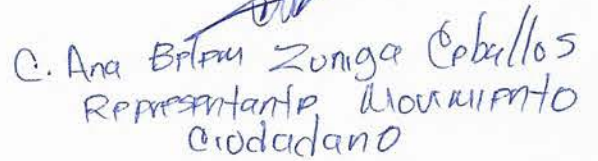 C. Ana Belem Zuniga Ceballos
Representante Movimiento
Ciudadano